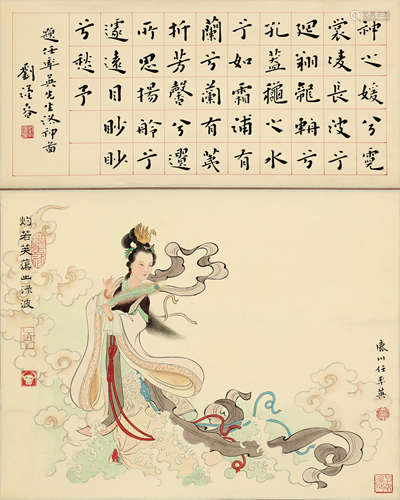 神之媛兮霓
裳凌長波兮
迴翔龍輈兮
孔蓋龝之水
兮如霜浦有
蘭兮蘭有
折芳馨兮遺
所思揚舲兮
遽遠目眇眇
兮愁予
題任率英先生洛神圖
劉
灼若芙蕖出淥波
川任率英